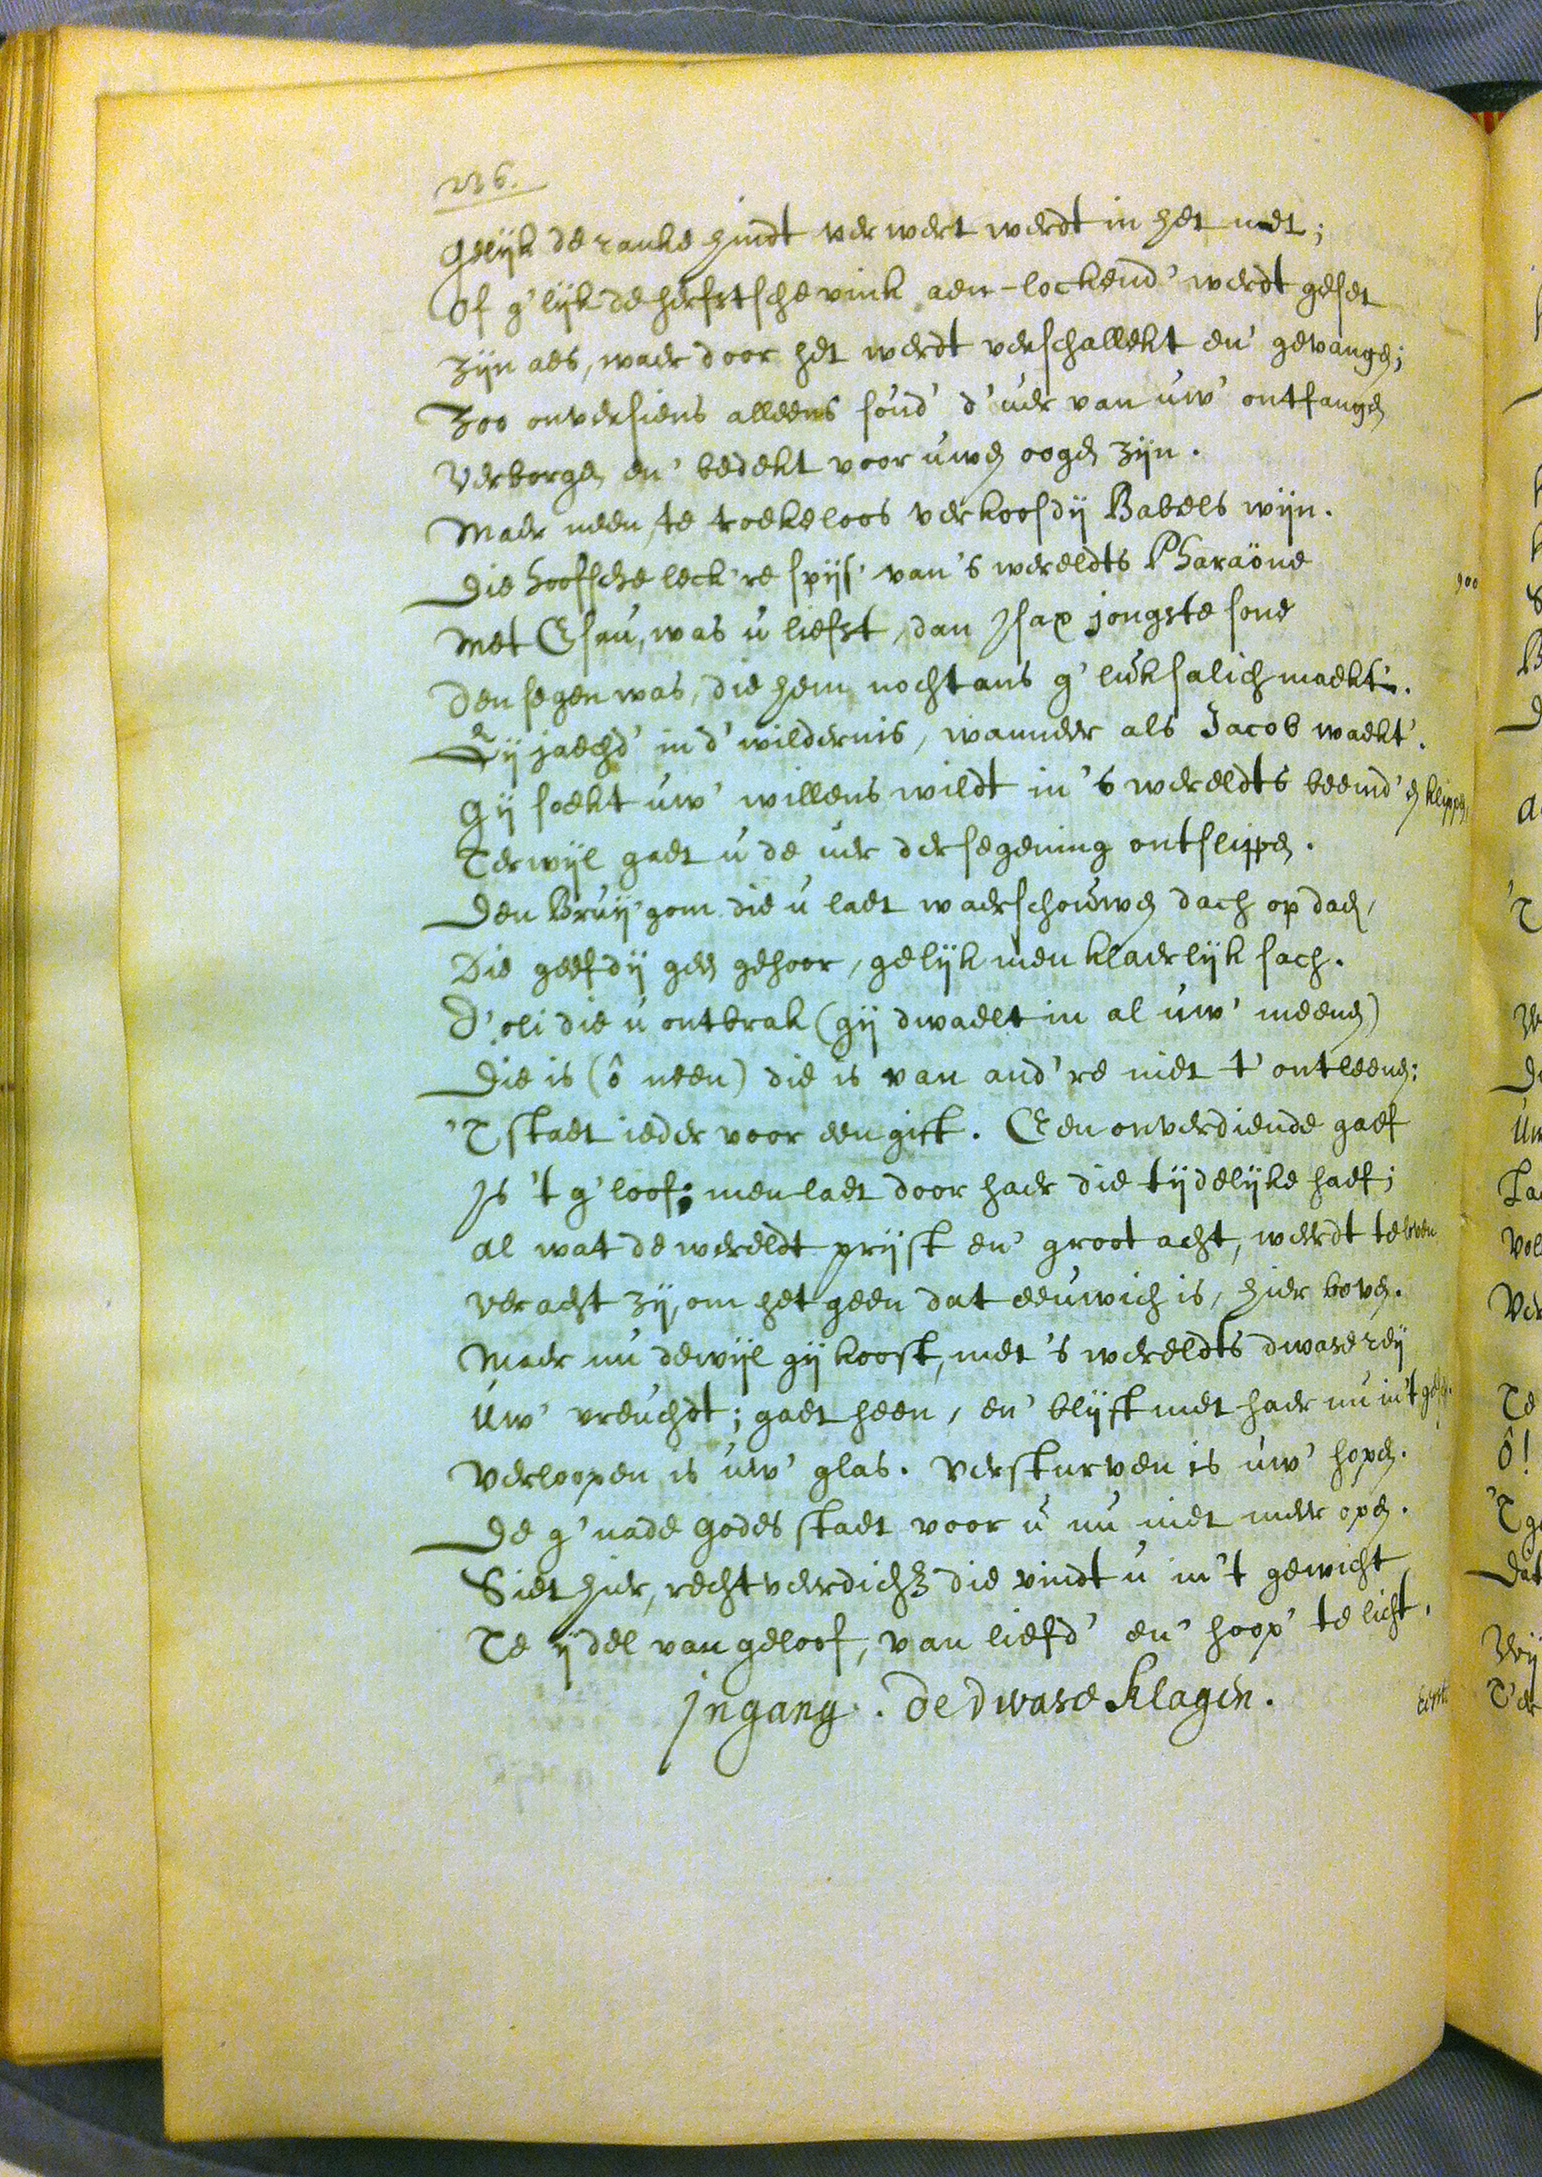 236.
Gelijk de ranke hindt verwert werdt in het net;
Of g'lijk de herfstsche vink aen-lockend' werdt geset
Zijn aes, waer door het werdt verschallekt en' gevangen;
Zoo onversiens alleens soud' d'uer van uw' ontfangen
Verborgen en' bedekt voor uwen oogen zijn.
Maer neen, te roekeloos verkoosdij Babels wijn.
Die hoofsche leck're spijs' van 's wereldts Pharaöne
Met Esau, was u liefst, dan Isax jongste sone
Den segen was, die hem nochtans g'luksalich maekt'.
Gij jaechd' in d'wildernis, wanneer als Jacob waekt'.
Gij soekt uw' willens wildt in 's wereldts beemd' en klippen,
Terwijl gaet u de uer der segening ontslippen.
Den Bruij'gom die u laet waerschouwen dach op dach,
Die geefdij geen gehoor, gelijk men klaerlijk sach.
D'oli die u ontbrak (gij dwaelt in al uw' meenen)
Die is (ô neen) die is van and're niet t' ontleenen:
'T staet ieder voor een gift. Een onverdiende gaef
Is 't g'loof; men laet door haer die tijdelijke haef;
al wat de wereldt prijst en' groot acht, werdt te loven
veracht zij, om het geen dat eeuwich is, hier boven.
Maer nu dewijl gij koost, met 's wereldts dwase rij
Uw' vreuchdt; gaet heen, en' blijft met haer nu in 't
Verloopen is uw' glas. Versturven is uw' hopen.
De g'nade Godes staet voor u nu niet meer open.
Siet hier, rechtveerdich die vindt u in 't gewicht
Te ijdel van geloof, van liefd' en' hoop' te licht.
Ingang. De dwase klagen.
900